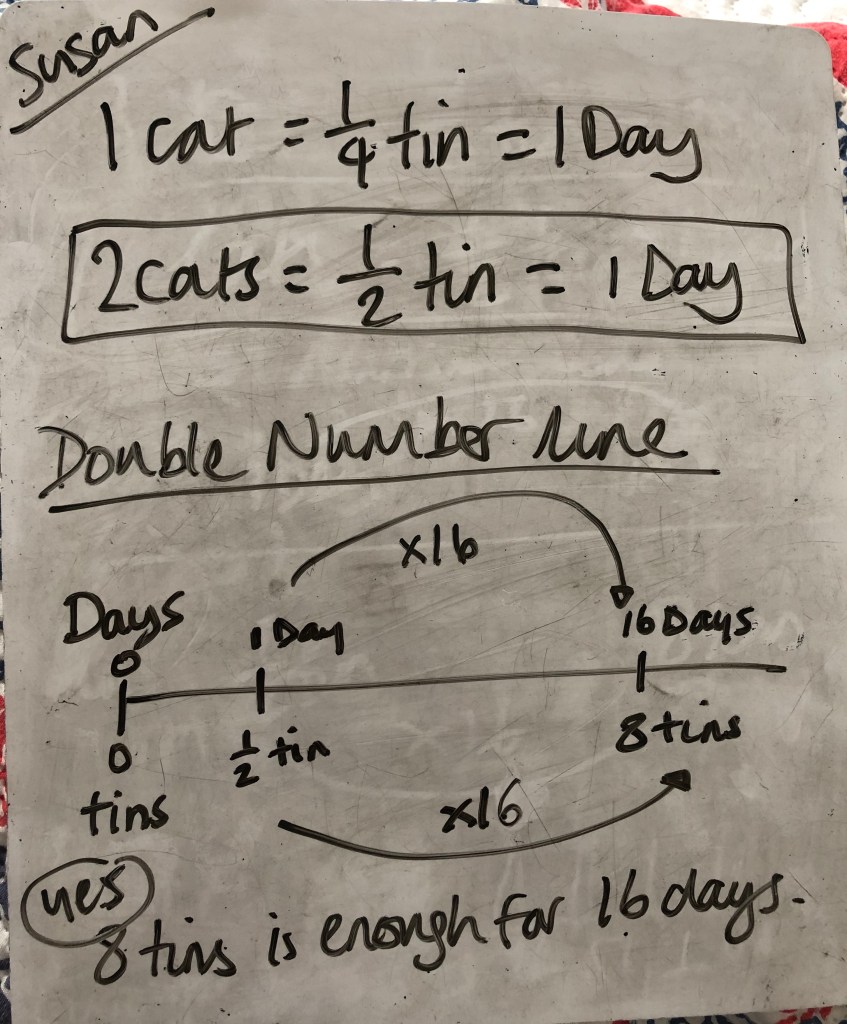 Susan
1 cat = 1/4 tin = 1 Day
2 cats = 1/2 tin = 1 Day
Double Number line
x16
Days
1 Day
16 Days
0
0
1/2 tin
8 tins
tins
x16
yes
8 tins is enough for 16 days.